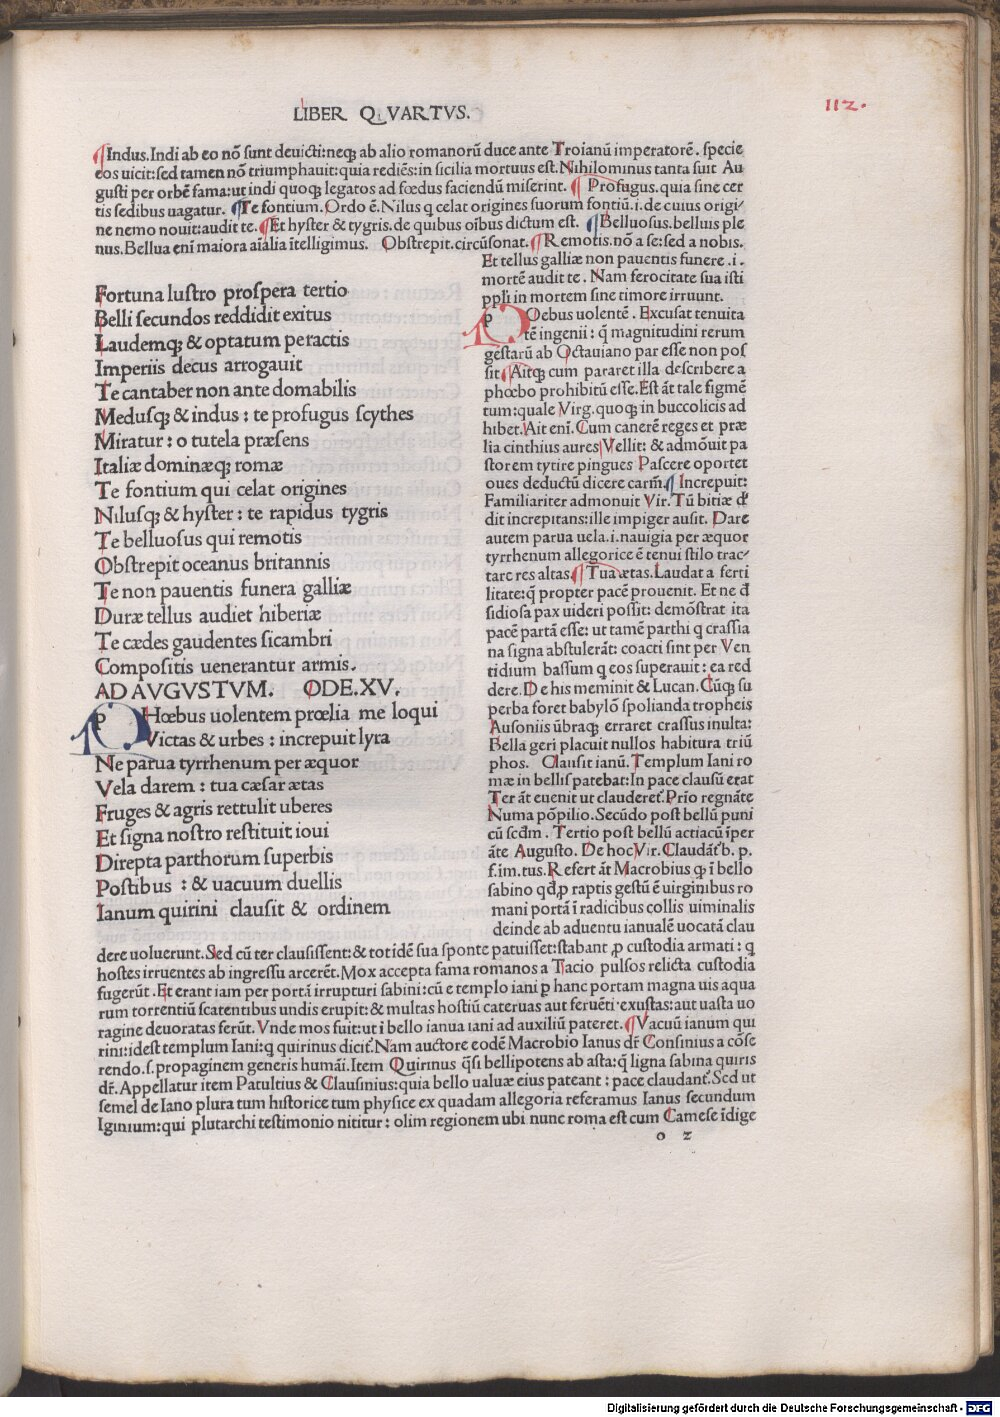 LIBER QVARTVS.
112.
¶Indus.Indi ab eo nõ sunt deuicti:neqꝫ ab alio romanorũ duce ante Troianũ imperatorẽ. specie
eos uicit:sed tamen nõ triumphauit:quia rediẽs:in sicilia mortuus est.Nihilominus tanta fuit Au
gusti per orbẽ fama:ut indi quoqꝫ legatos ad fœdus faciendũ miserint. ¶ Profugus.quia sine cer
tis sedibus uagatur. ¶Te fontium.Ordo ẽ.Nilus q celat origines suorum fontiũ.i.de cuius origi⸗
ne nemo nouit:audit te.¶Et hyster & tygris.de quibus oĩbus dictum est. ¶Belluosus.belluis ple
nus.Bellua enĩ maiora aĩalia ĩtelligimus. Obstrepit.circũsonat.¶Remotis.nõ a se:sed a nobis.
Fortuna lustro prospera tertio
Belli secundos reddidit exitus
Laudemqꝫ & optatum peractis
Imperiis decus arrogauit
Te cantaber non ante domabilis
Medusqꝫ & indus : te profugus scythes
Miratur : o tutela præsens
Italiæ dominæqꝫ romæ
Te fontium qui celat origines
Nilusqꝫ & hyster : te rapidus tygris
Te belluosus qui remotis
Obstrepit oceanus britannis
Te non pauentis funera galliæ
Duræ tellus audiet hiberiæ
Te cædes gaudentes sicambri
Compositis uenerantur armis.
AD AVGVSTVM. ODE.XV.
pHœbus uolentem prœlia me loqui
Victas & urbes : increpuit lyra
Ne parua tyrrhenum per æquor
Vela darem : tua cæsar ætas
Fruges & agris rettulit uberes
Et signa nostro restituit ioui
Direpta parthorum superbis
Postibus : & uacuum duellis
Ianum quirini clausit & ordinem
Et tellus galliæ non pauentis funere .i.
mortẽ audit te . Nam ferocitate sua isti
ppl̃i in mortem sine timore irruunt.
pOebus uolentẽ . Excusat tenuita
tẽ ingenii : q̃ magnitudini rerum
gestarũ ab Octauiano par esse non pos
sit.¶Aitqꝫ cum pararet illa describere a
phœbo prohibitũ esse.Est ãt tale figmẽ
tum:quale Virg.quoqꝫ in buccolicis ad
hibet.Ait enĩ.Cum canerẽ reges et præ
lia cinthius aures Vellit: & admõuit pa
storem tytire pingues Pascere oportet
oues deductũ dicere carm̃.¶ Increpuit:
Familiariter admonuit Vir. Tũ bitiæ d̃
dit increpitans:ille impiger ausit. Dare
autem parua uela.i.nauigia per æquor
tyrrhenum allegorice ẽ tenui stilo trac⸗
tare res altas.¶Tua ætas.Laudat a ferti
litate:q̃ propter pacẽ prouenit. Et ne d̃
sidiosa pax uideri possit: demõstrat ita
pacẽ partã esse: ut tamẽ parthi q crassia
na signa abstulerãt: coacti sint per Ven
tidium bassum q eos superauit : ea red
dere.De his meminit & Lucan.Cũqꝫ su
perba foret babylõ spolianda tropheis
Ausoniis ũbraqꝫ erraret crassus inulta:
Bella geri placuit nullos habitura triũ
phos. Clausit ianũ.Templum Iani ro
mæ in bellis patebat:In pace clausũ erat
Ter ãt euenit ut clauderet᷑.Prĩo regnãte
Numa põpilio.Secũdo post bellũ puni
cũ scd̃m . Tertio post bellũ actiacũ ĩper
ãte Augusto. De hoc Vir.Claudãt᷑.b. p.
f.im.tus.Refert ãt Macrobius qꝫ ĩ bello
sabino qd̃ ꝓ raptis gestũ ẽ uirginibus ro
mani portã ĩ radicibus collis uiminalis
deinde ab aduentu ianualẽ uocatã clau
dere uoluerunt.Sed cũ ter clausissent:& totidẽ sua sponte patuisset:stabant ꝓ custodia armati : q
hostes irruentes ab ingressu arcerẽt.Mox accepta fama romanos a Tacio pulsos relicta custodia
fugerũt .Et erant iam per portã irrupturi sabini:cũ e templo iani ꝑ hanc portam magna uis aqua
rum torrentiũ scatentibus undis erupit:& multas hostiũ cateruas aut feruẽti exustas:aut uasta uo
ragine deuoratas ferũt.Vnde mos fuit:ut ĩ bello ianua iani ad auxiliũ pateret.¶Vacuũ ianum qui
rini:idest templum Iani:q quirinus dicit᷑.Nam auctore eodẽ Macrobio Ianus dr̃ Consinius a cõse
rendo.s.propaginem generis humãi.Item Quirinus q̃si bellipotens ab asta:q̃ ligna sabina quiris
dr̃.Appellatur item Patultius & Clausinius:quia bello ualuæ eius pateant : pace claudant᷑.Sed ut
semel de Iano plura tum historice tum physice ex quadam allegoria referamus Ianus secundum
Iginium:qui plutarchi testimonio nititur : olim regionem ubi nunc roma est cum Camese ĩdige
o 2
Digitalisierung gefördert durch die Deutsche Forschungsgemeinschaft - DFG